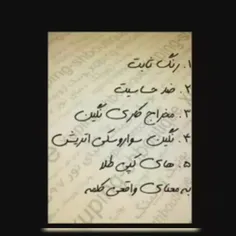 ۱. رنگ ثابت
۲. ضد حساسیت
۳. مخراج کاری نگین
۴. نگین سواروسکی اتریش
۵. های کپی طلا
به معنای واقعی کلمه